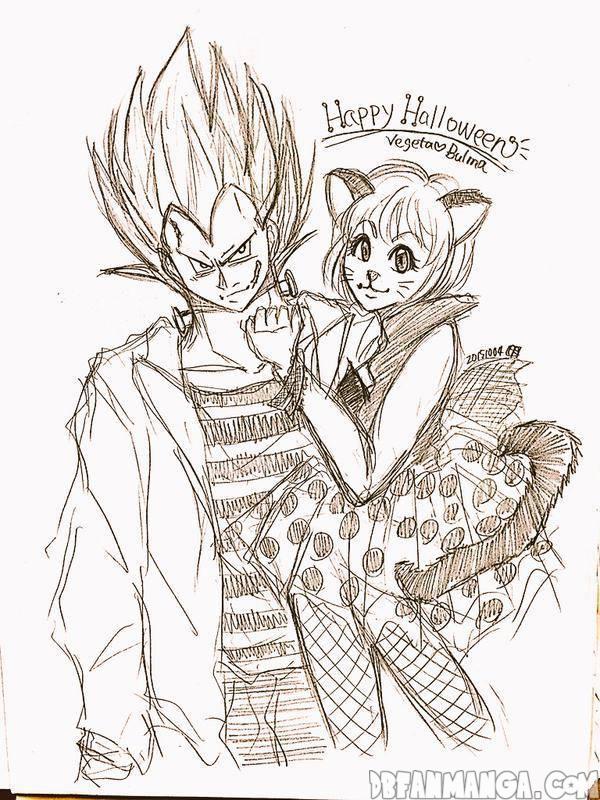 Happy Halloween
Vegeta♡Bulma
20151004
DBFANMANGA.COM